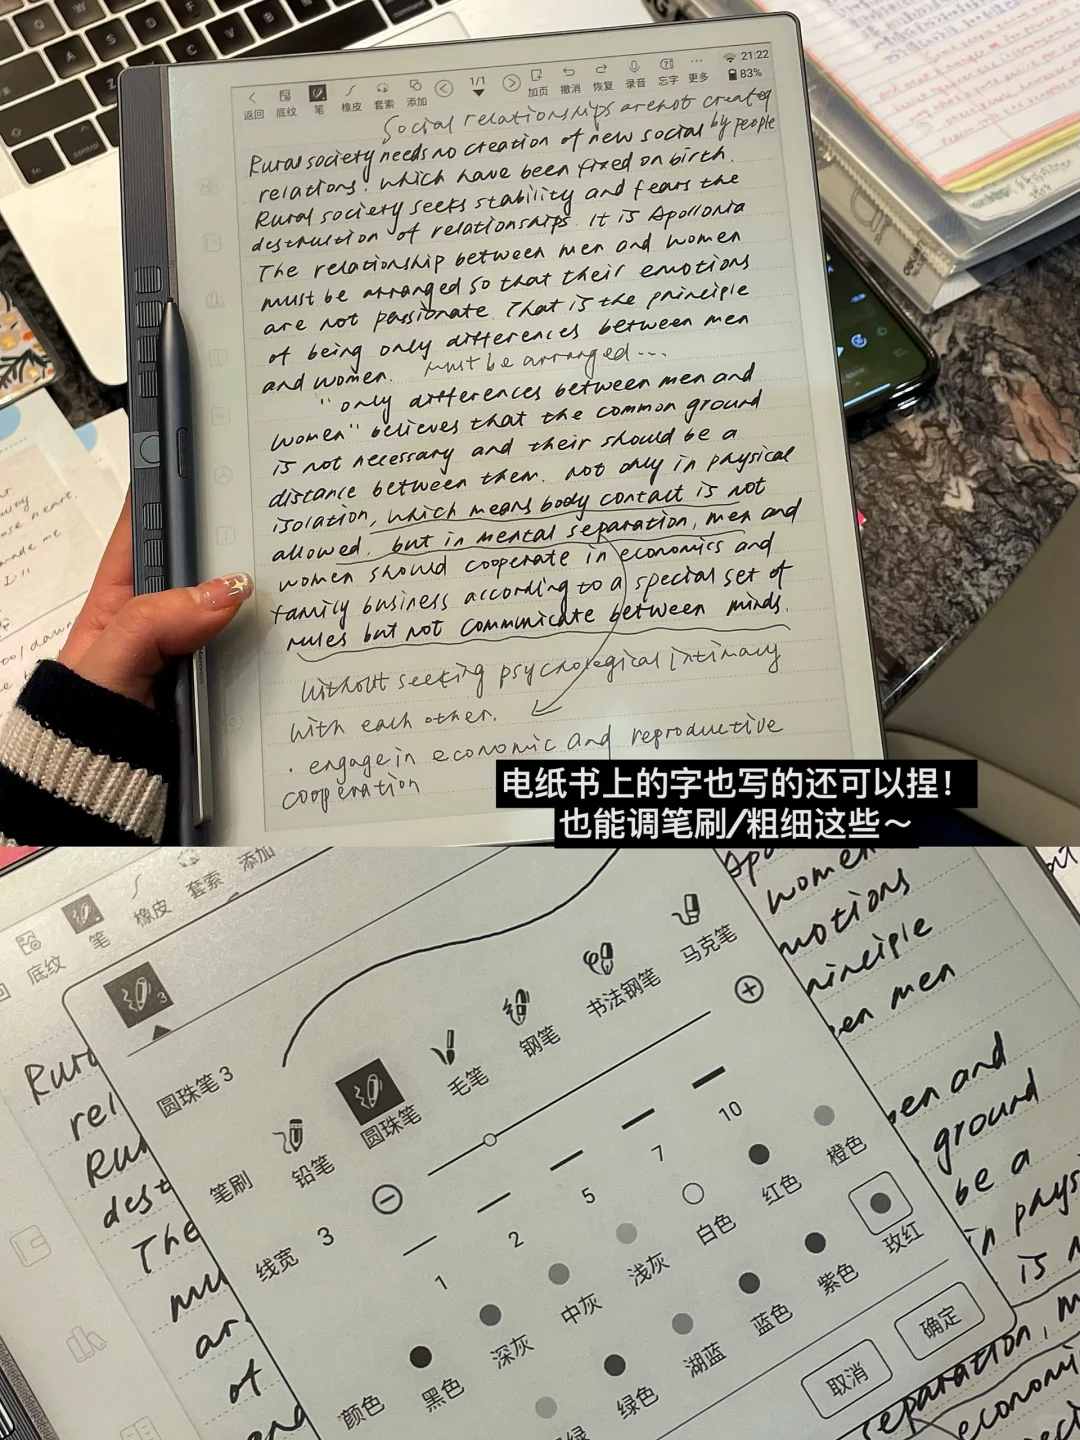 返回 底纹 笔 橡皮 套索 添加 1/1 加页 撤消 恢复 录音 忘字 更多 21:22 83%
Social relationships are not created
by people
Rural society needs no creation of new social
relations. which have been fixed on birth.
Rural society seeks stability and fears the
destruction of relationships. It is Apollonia
The relationship between men and women
must be arranged so that their emotions
are not passionate. That is the principle
of being only differences between men
and women. must be arranged...
"only differences between men and
women" believes that the common ground
is not necessary and their should be a
distance between them. not only in physical
isolation, which means body contact is not
allowed. but in mental separation, men and
women should cooperate in economics and
family business according to a special set of
rules but not communicate between minds.
Without seeking psychological intimacy
with each other.
. engage in economic and reproductive
cooperation
电纸书上的字也写的还可以捏！
也能调笔刷/粗细这些～
底纹 笔 橡皮 套索 添加
3
圆珠笔 3
笔刷 铅笔 圆珠笔 毛笔 钢笔 书法钢笔 马克笔
线宽 3
1 2 5 7 10
颜色 黑色 深灰 中灰 浅灰 白色 红色 橙色
绿色 湖蓝 蓝色 紫色 玫红
取消 确定
women
motions
principle
en men
Rura
rel
Ru
dest
The
mu
ar
of
en and
ground
be a
in phys
is n
separation, m
economi